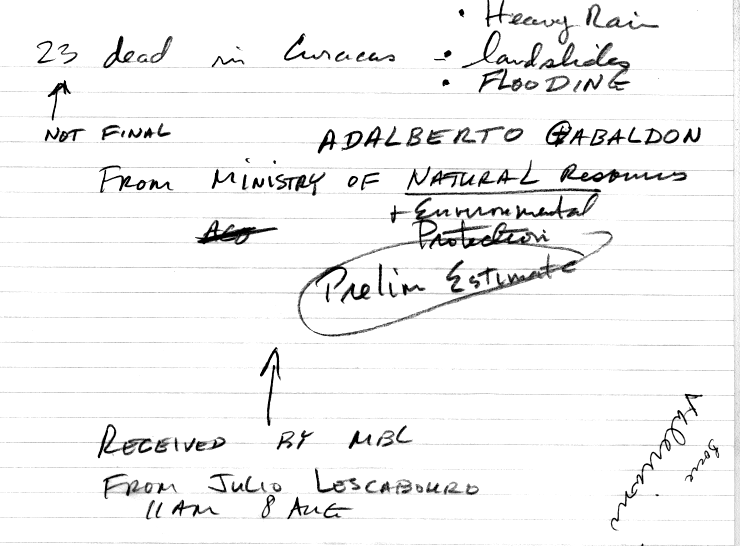 • Heavy Rain
23 dead in Curacas - • landslides
• FLOODING
NOT FINAL
ADALBERTO GABALDON
FROM MINISTRY OF NATURAL Resources
+ Environmental
Protection
Prelim Estimate
RECEIVED BY MBC
FROM JULIO LESCABOURO
11 AM 8 AUG
Some